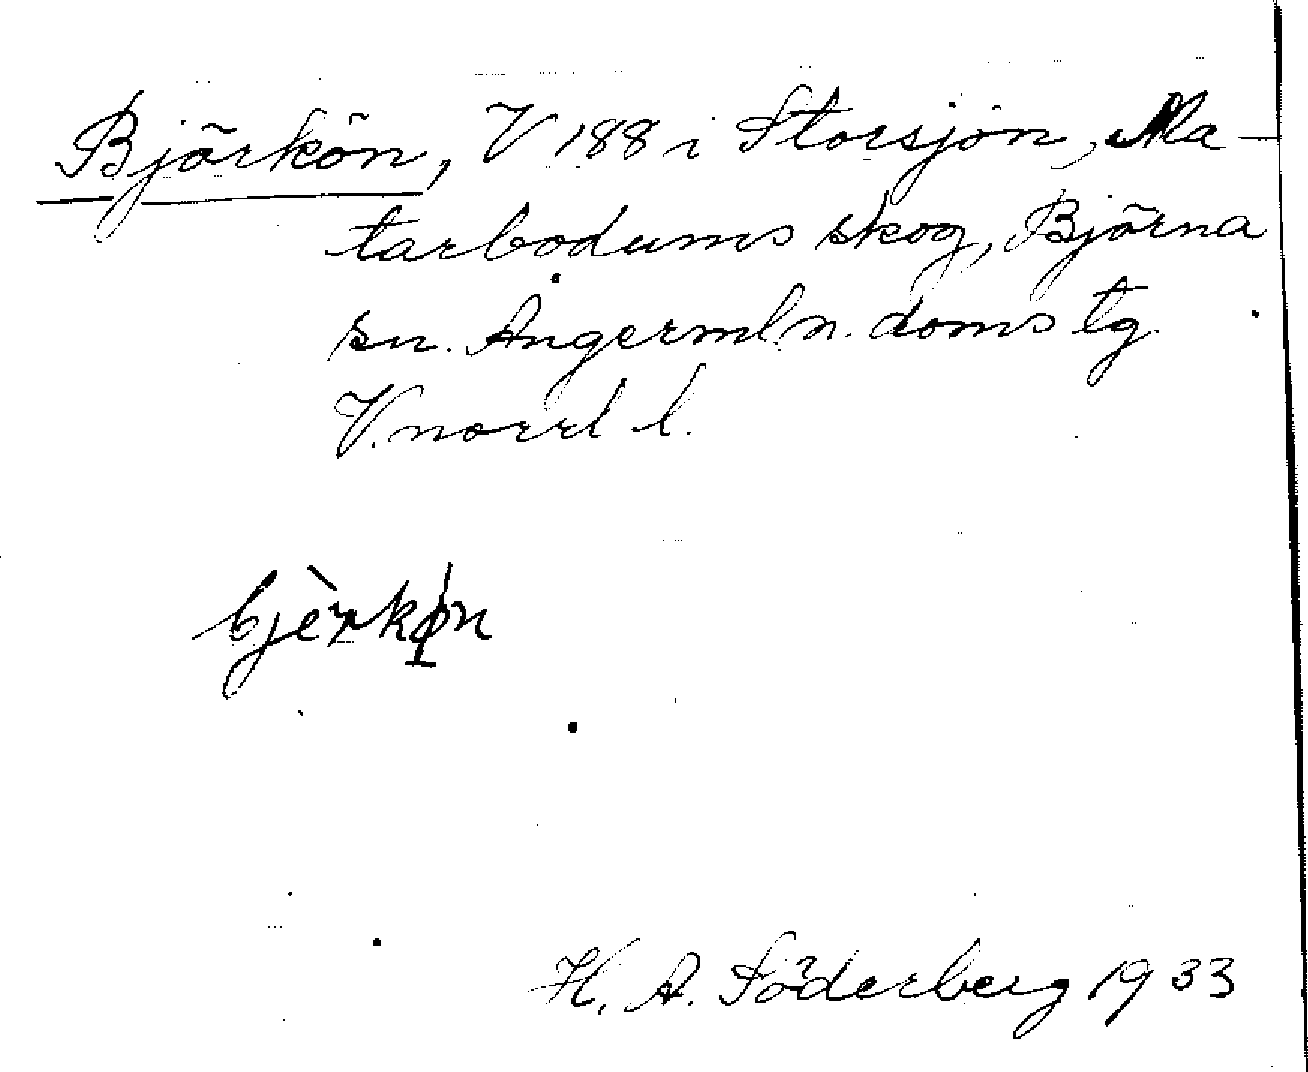 Björkön, V 188 i Storsjön, Ma-
tarbodums skog, Björna
sn. Ångermln. doms tg
V.norrl l.
bjèrkøn
H. A. Söderberg 1933